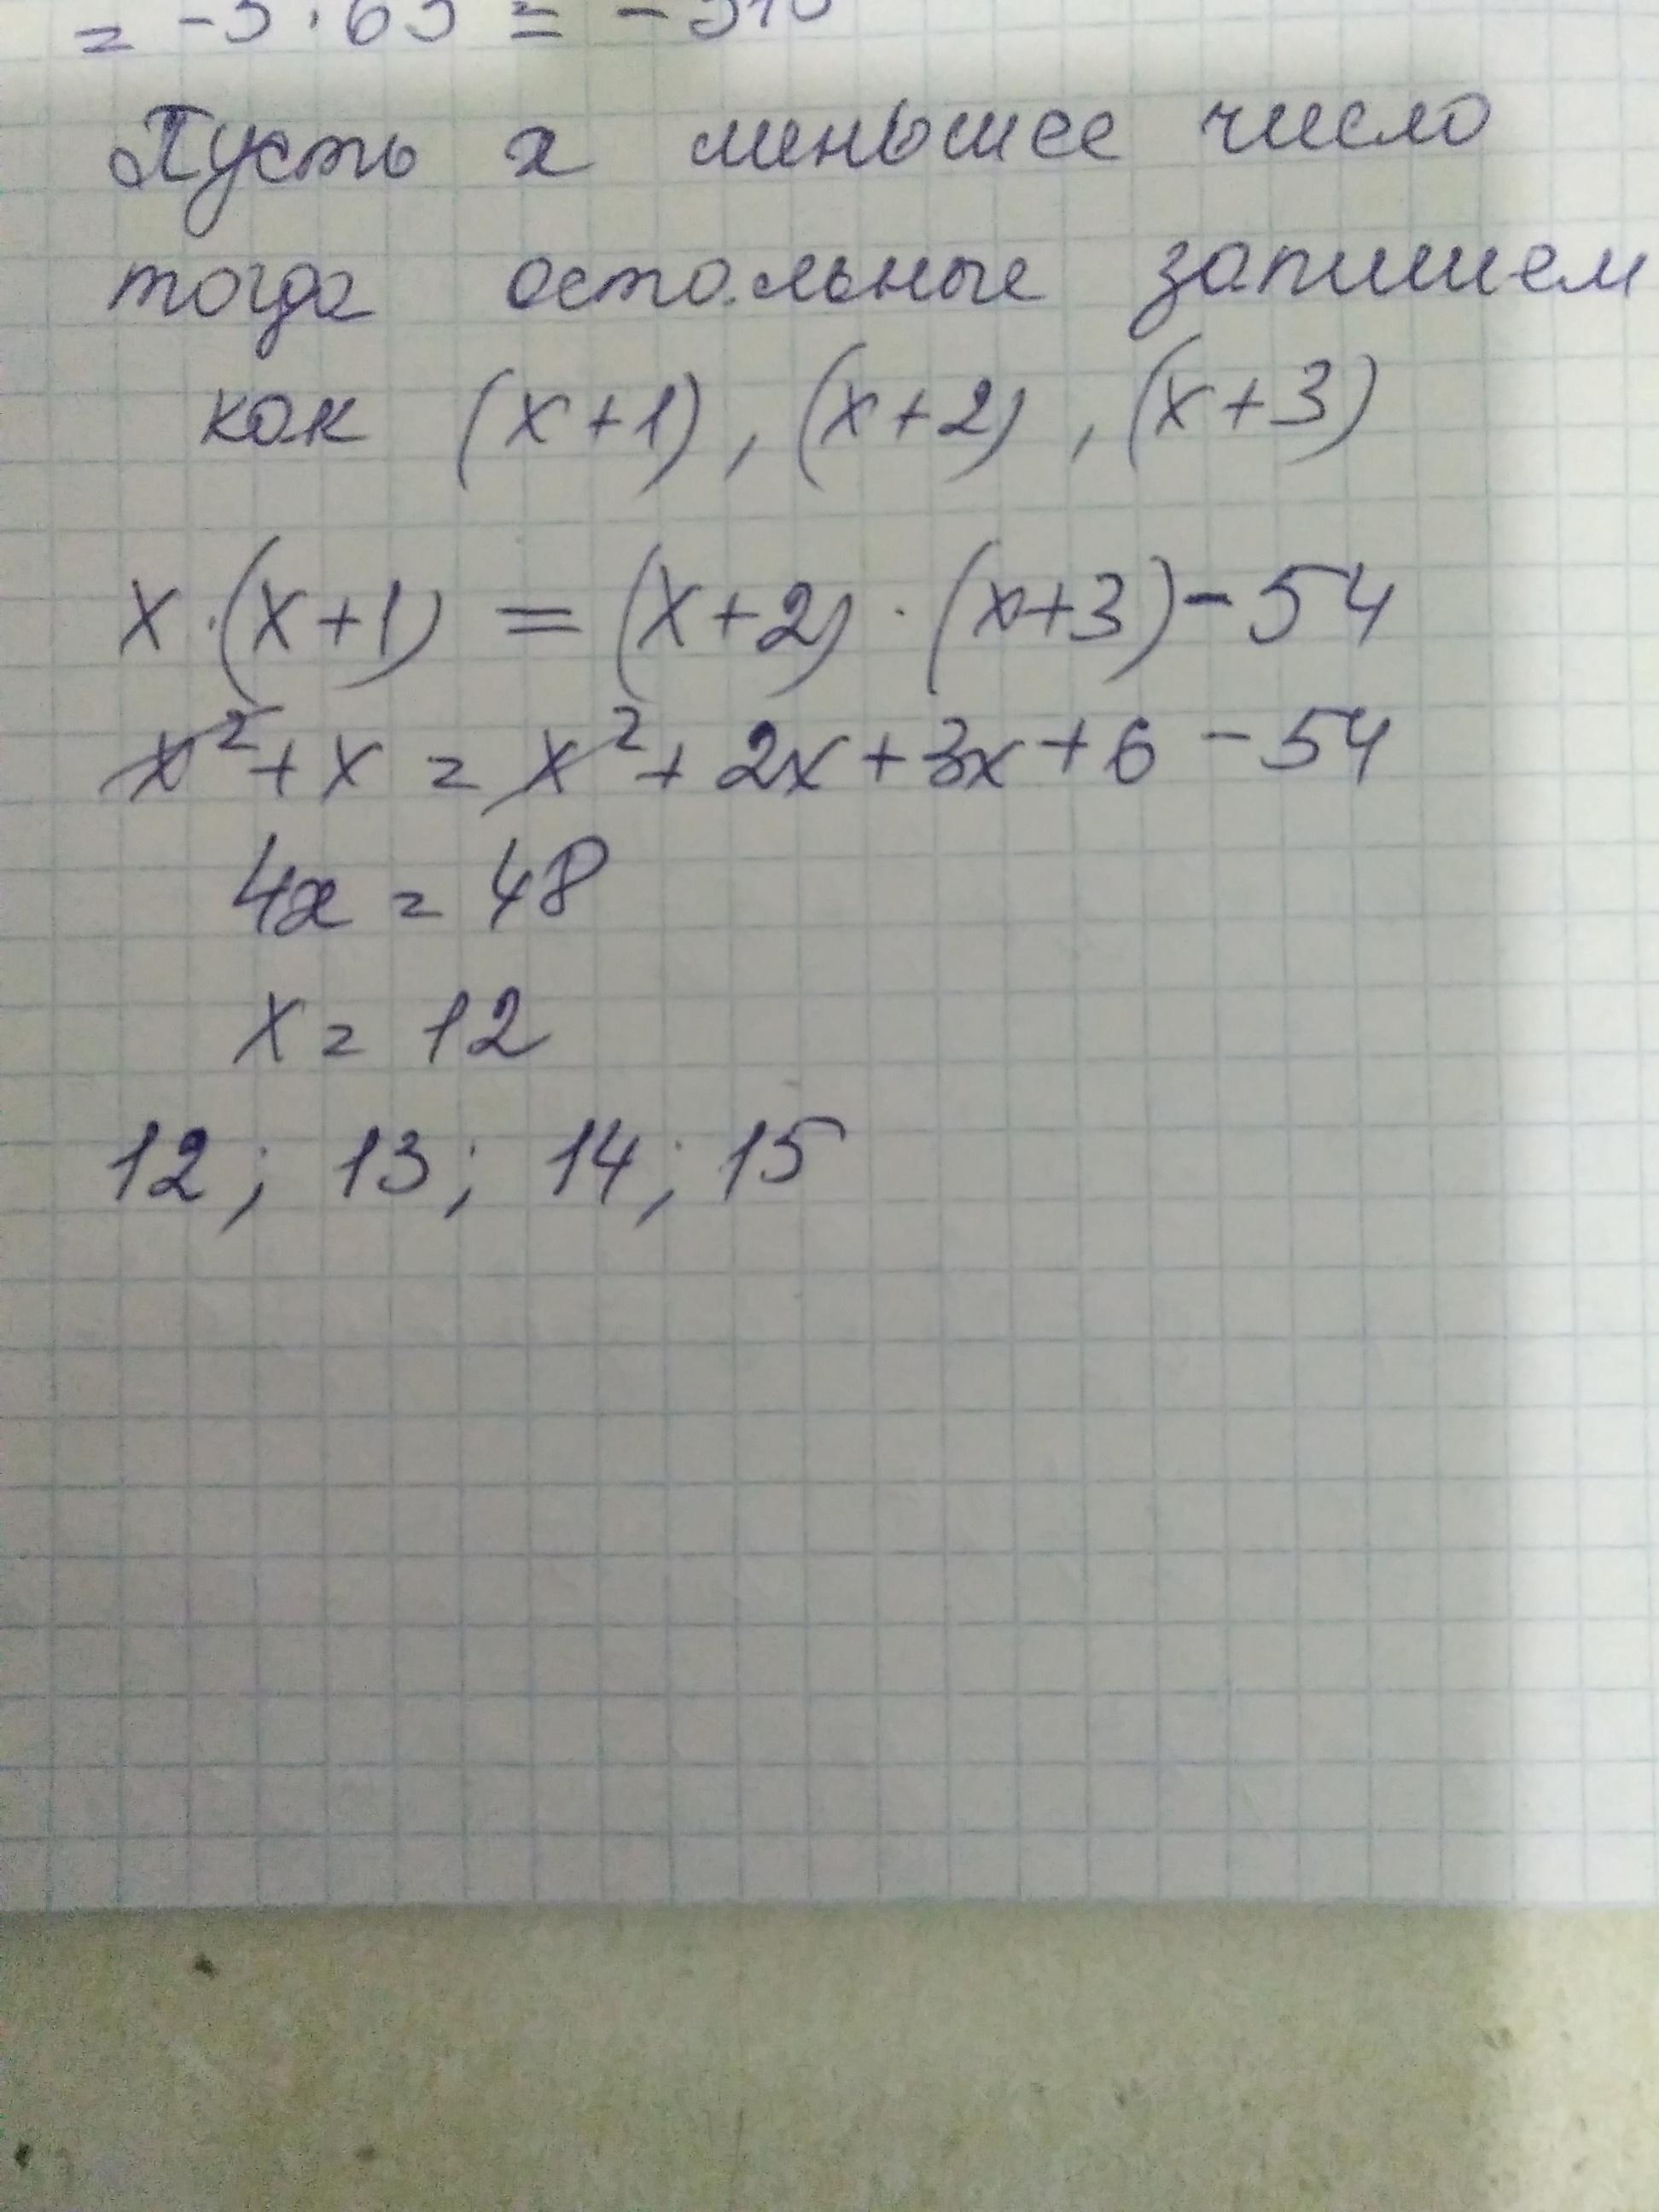 = -5 · 63 =
Пусть x меньшее число
тогда остальные запишем
как (x+1), (x+2), (x+3)
x·(x+1) = (x+2)·(x+3)-54
x²+x = x²+2x+3x+6-54
4x = 48
x = 12
12; 13; 14; 15